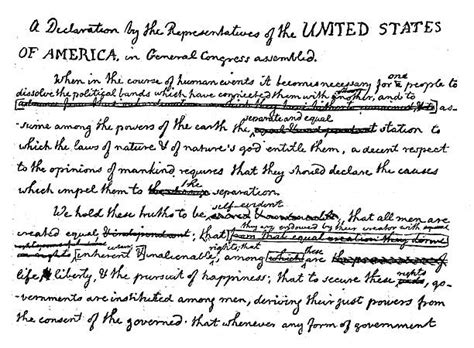 A Declaration by the Representatives of the UNITED STATES
OF AMERICA, in General Congress assembled.
one
When in the course of human events it becomes necessary for people to
dissolve the political bands which have connected them with another, and to
as-
separate and equal
-sume among the powers of the earth the station to
which the laws of nature & of nature's god entitle them, a decent respect
to the opinions of mankind requires that they should declare the causes
the
which impel them to separation.
self-evident
We hold these truths to be, that all men are
they are endowed by their creator with
created equal & that
rights; that
inherent & inalienable, among these are
life, & liberty, & the pursuit of happiness; that to secure these rights, go-
-vernments are instituted among men, deriving their just powers from
the consent of the governed. that whenever any form of government